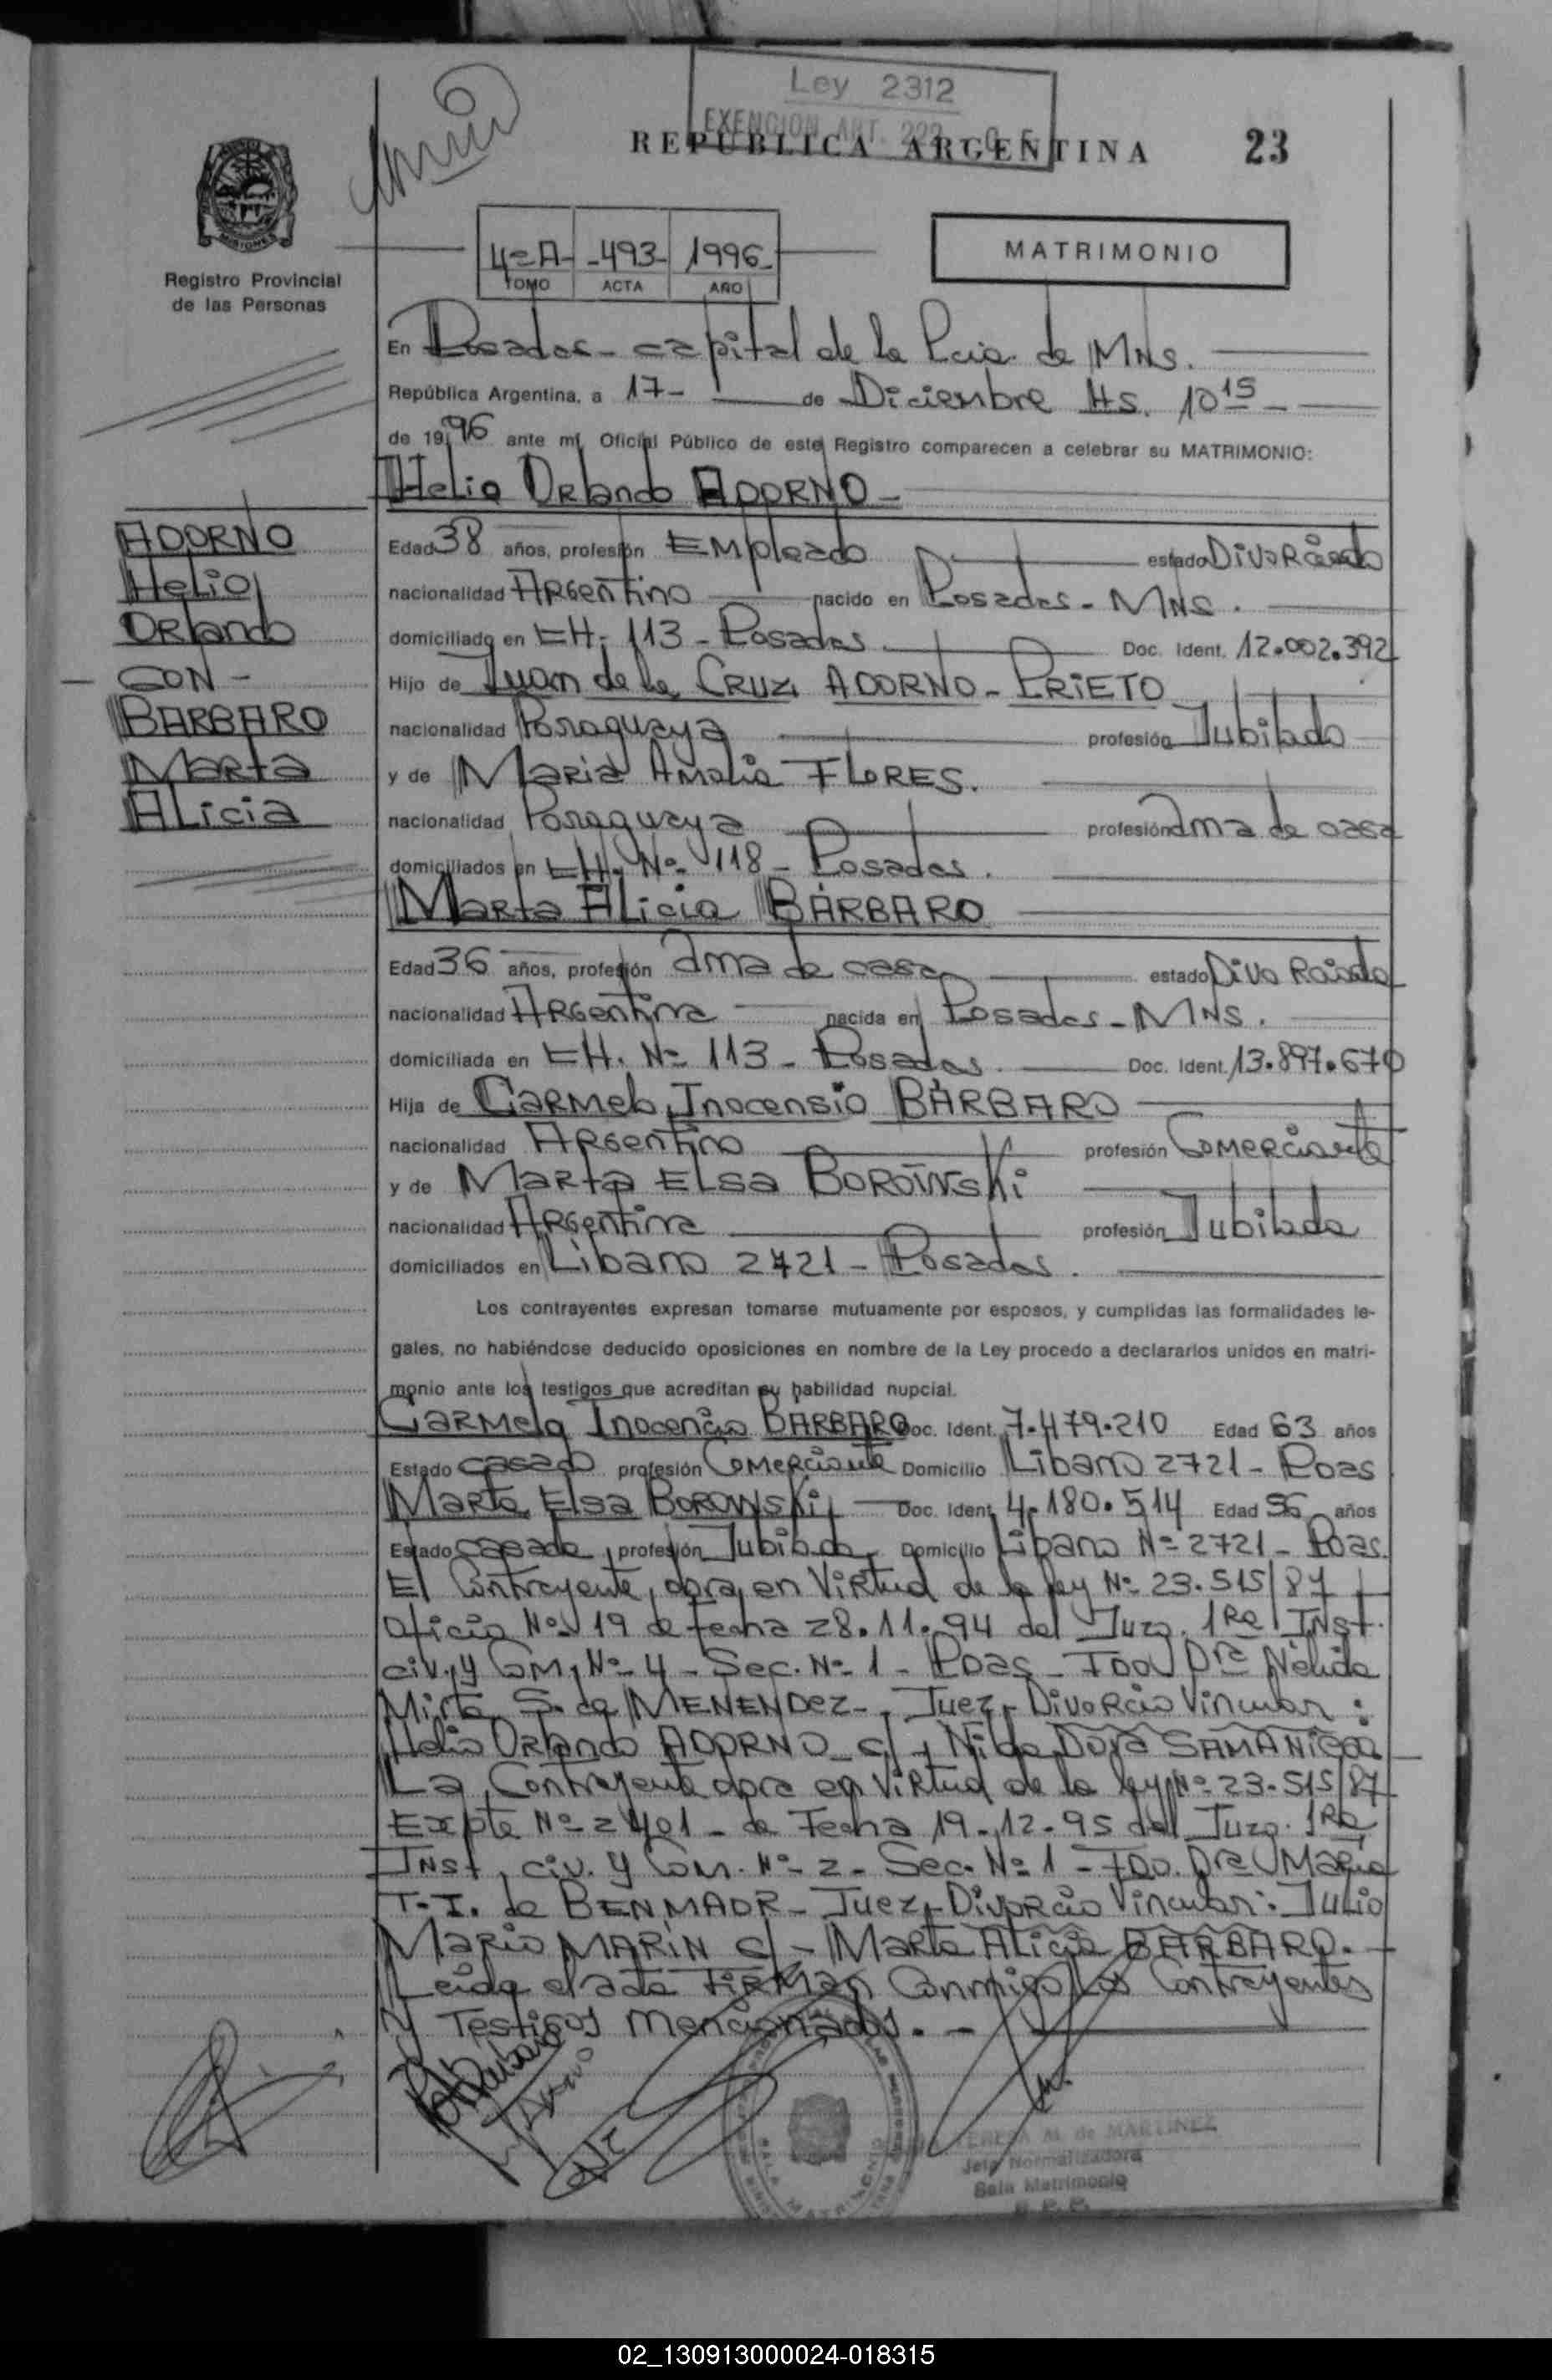 Ley 2312
EXENCION ART. 222
REPUBLICA ARGENTINA 23
MISIONES
Registro Provincial
de las Personas
4=A- -493- 1996-
TOMO ACTA AÑO
MATRIMONIO
En Posadas - capital de la Pcia. de MNS.
República Argentina, a 17- de Diciembre Hs. 10 15 -
de 19 96 ante mí, Oficial Público de este Registro comparecen a celebrar su MATRIMONIO:
Helio Orlando ADORNO -
ADORNO
Helio
Orlando
- CON -
BARBARO
Marta
Alicia
Edad 38 años, profesión Empleado estado Divorciado
nacionalidad Argentino nacido en Posadas - MNS.
domiciliado en CH. 113 - Posadas Doc. Ident. 12.002.392
Hijo de Juan de la CRUZ ADORNO - PRIETO
nacionalidad Paraguaya profesión Jubilado
y de Maria Amalia FLORES.
nacionalidad Paraguaya profesión ama de casa
domiciliados en CH. Nº 118 - Posadas.
Marta Alicia BÁRBARO
Edad 36 años, profesión ama de casa estado Divorciada
nacionalidad Argentina nacida en Posadas - MNS.
domiciliada en CH. Nº 113 - Posadas. Doc. Ident. 13.897.670
Hija de Carmelo Inocensio BÁRBARO
nacionalidad Argentino profesión Comerciante
y de Marta Elsa BOROWSKi
nacionalidad Argentina profesión Jubilada
domiciliados en Libano 2721 - Posadas.
Los contrayentes expresan tomarse mutuamente por esposos, y cumplidas las formalidades le-
gales, no habiéndose deducido oposiciones en nombre de la Ley procedo a declararlos unidos en matri-
monio ante los testigos que acreditan su habilidad nupcial.
Carmelo Inocencio BARBARO Doc. Ident. 7.479.210 Edad 63 años
Estado casado profesión Comerciante Domicilio Libano 2721 - Pdas
Marta Elsa BOROWSKi - Doc. Ident. 4.180.514 Edad 56 años
Estado casada profesión Jubilada Domicilio Libano Nº 2721 - Pdas.
El Contrayente, obra en Virtud de la ley Nº 23.515/87
Oficio Nº 19 de fecha 28.11.94 del Juzg. 1Ra Inst.
civ. y Com. Nº 4 - Sec. Nº 1 - Pdas - FDO Dra Nélida
Mirta S. de MENENDEZ - Juez - Divorcio Vincular:
Helio Orlando ADORNO c/ Nilda Dora SAMANIEGO.
La Contrayente obra en Virtud de la ley Nº 23.515/87
Expte Nº 2401 - de Fecha 19.12.95 del Juzg. 1Ra
Inst. civ. y Com. Nº 2 - Sec. Nº 1 - FDO. Dra Maria
T. I. de BENMAOR - Juez - Divorcio Vincular: Julio
Mario MARIN c/ - Marta Alicia BARBARO.-
Leida el acta FIRMAN Conmigo Los Contrayentes
y Testigos Mencionados. -
TERESA M. de MARTINEZ
Jefa Normalizadora
Sala Matrimonio
R. P. P.
02_130913000024-018315